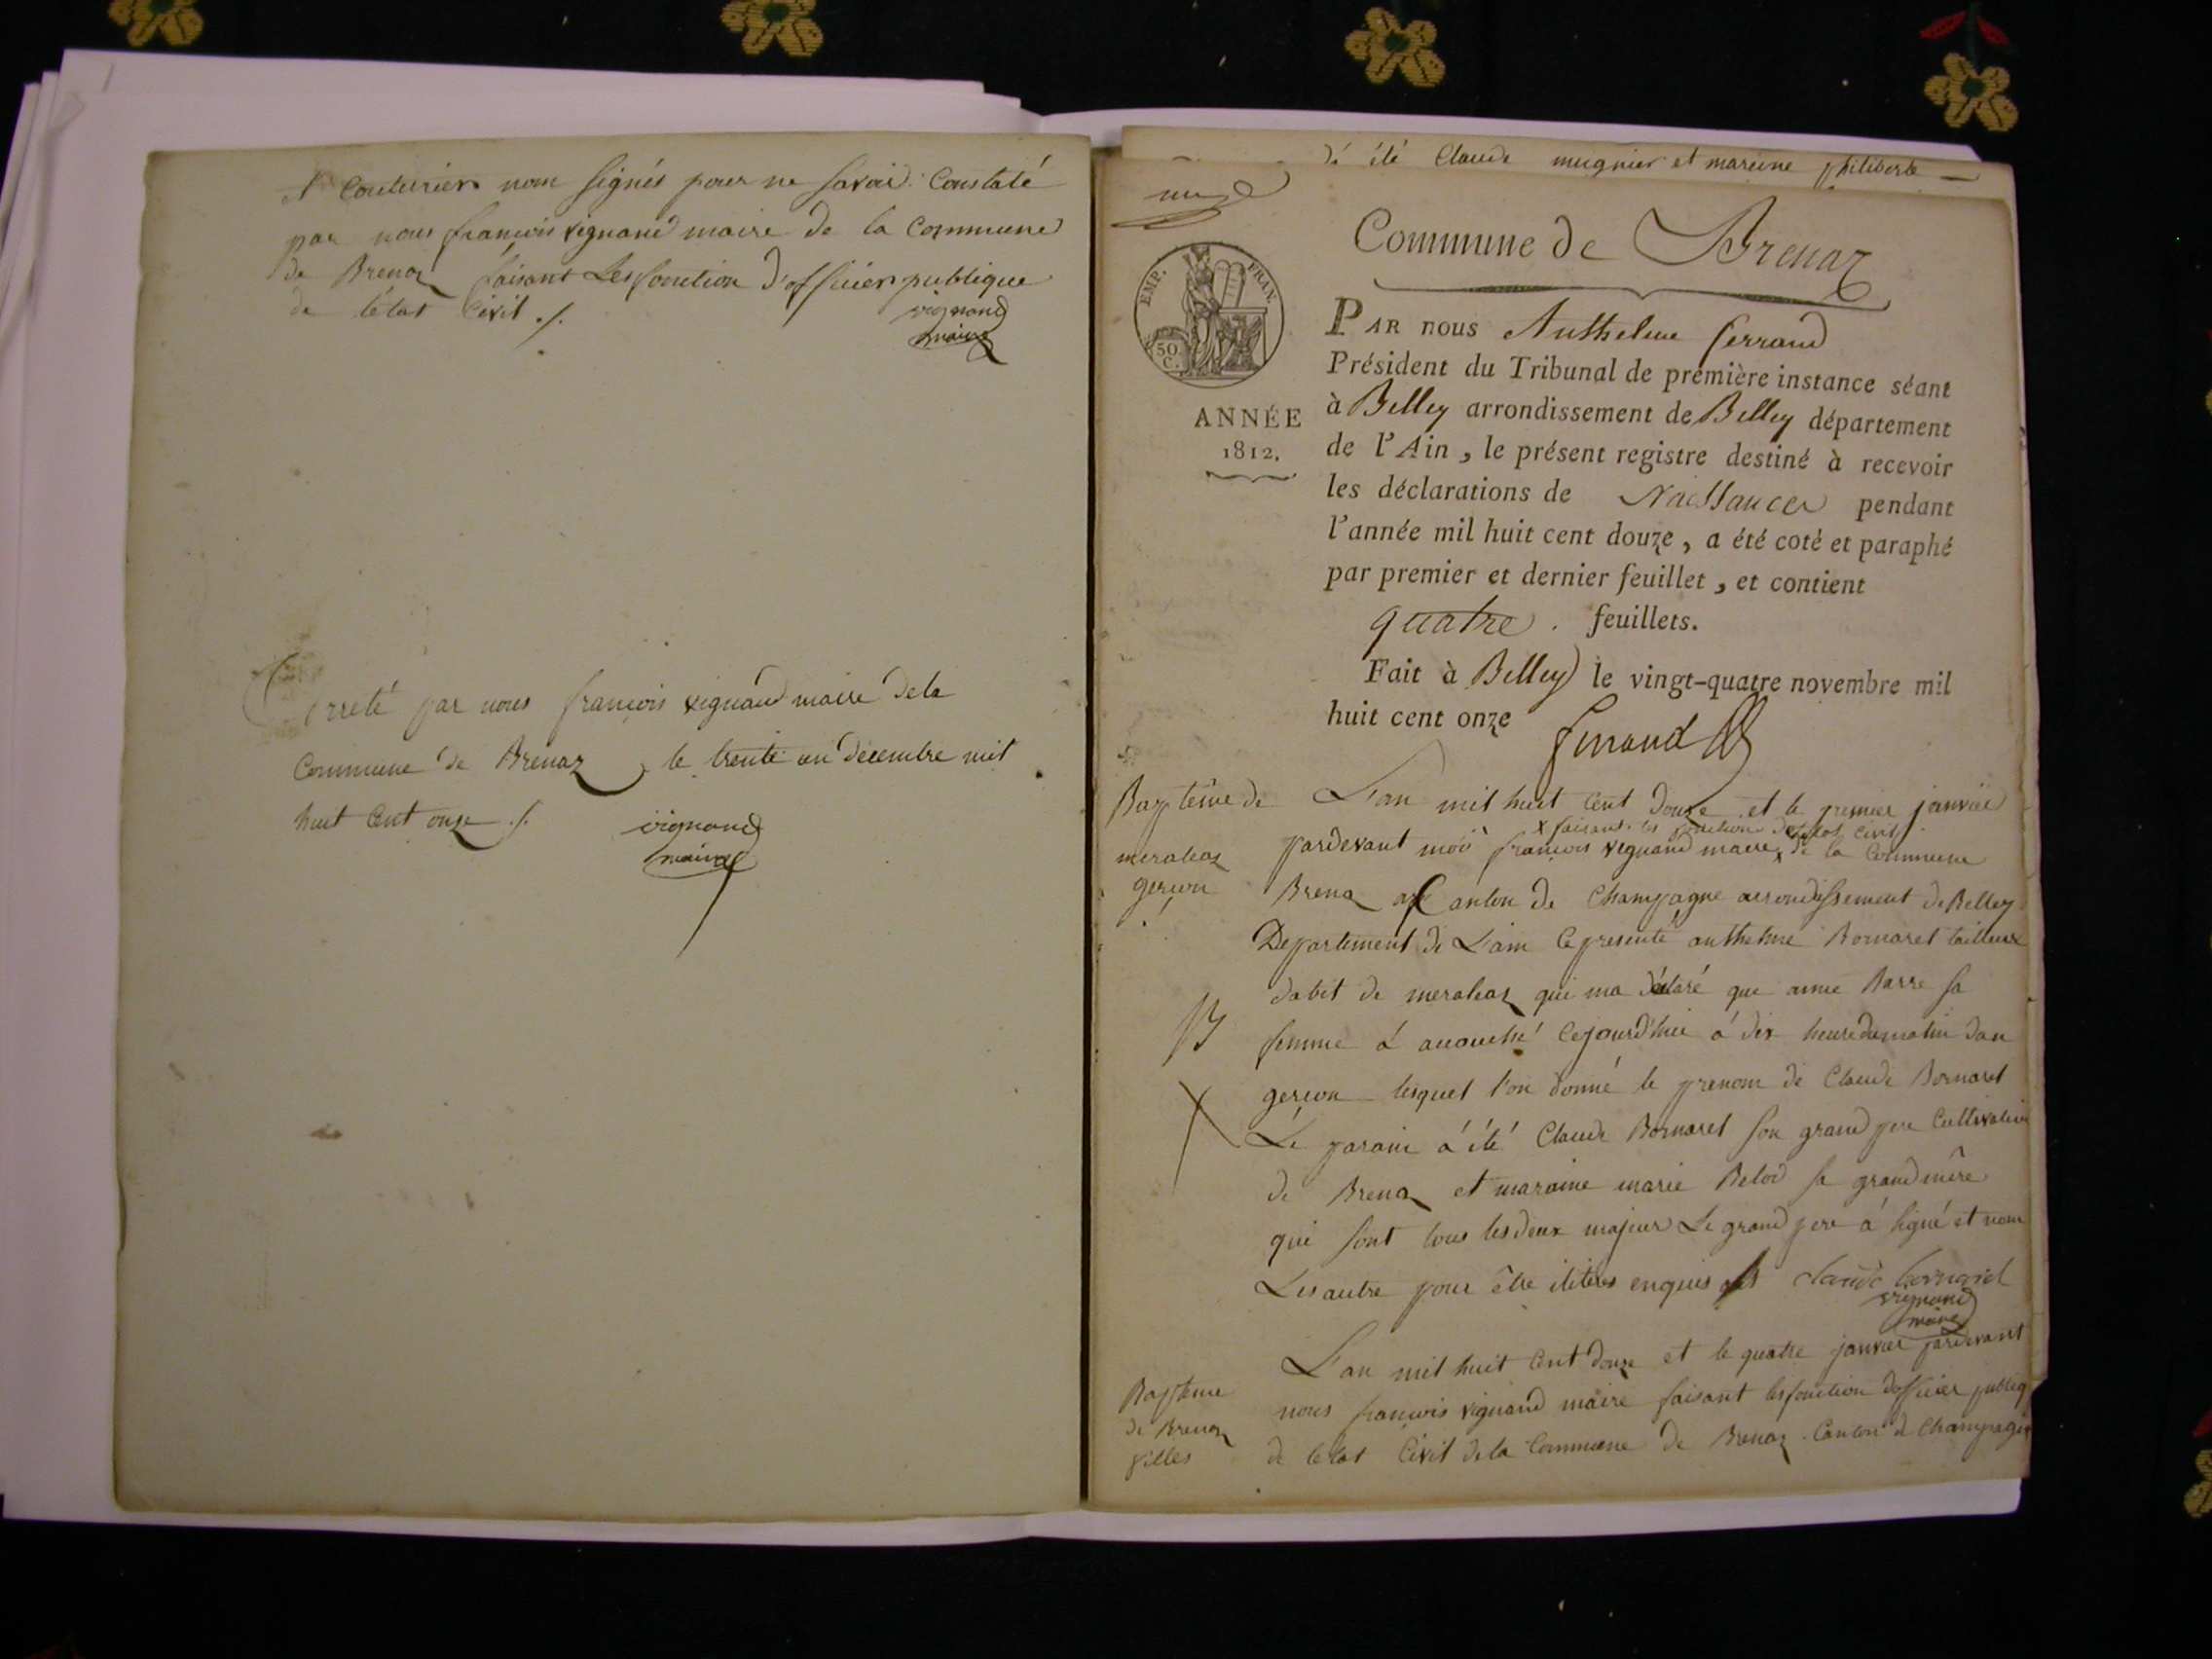 Couturier nom signés pour ne savoir. Constaté
par nous françois vignand maire de la Commune
de Brenaz faisant Les fonction d'officier publique
de létat Civil ./.
vignand
maire
arreté par nous françois vignand maire de la
Commune de Brenaz le trente un décembre mil
huit Cent onze ./.
vignand
maire
à été Claude mugnier et mareine philiberte
Commune de Brenaz
EMP. FRAN.
50 C.
ANNÉE
1812.
PAR nous Anthelme ferrand
Président du Tribunal de première instance séant
à Belley arrondissement de Belley département
de l'Ain, le présent registre destiné à recevoir
les déclarations de Naissances pendant
l'année mil huit cent douze, a été coté et paraphé
par premier et dernier feuillet, et contient
quatre . feuillets.
Fait à Belley le vingt-quatre novembre mil
huit cent onze
ferrand
Baptême de
meraleaz
gerson
L'an mil huit Cent Douze et le premier janvier
x faisant les fonction de letat civil
pardevant moi françois vignand maire x de la Commune
Brenaz Canton de Champagne arrondissement de Belley
Departement de L'ain Ce presenté anthelme Bornaret tailleur
dabit de meraleaz qui ma déclaré que anne Barre sa
femme á acouché Cejourd'hui á dix heure du matin dan
gerson lesquel l'on donné le prenom de Claude Bornaret
Le parain á été Claude Bornaret son grand pere Cultivateur
de Brenaz et maraine marie Belod sa grand mère
qui sont tous les deux majeur Le grand pere á signé et nom
Les autre pour être iliteres enquis claude bornaret
vignand
maire
L'an mil huit Cent douze et le quatre janvier pardevant
Bapteme
de Brenaz
filles
nous françois vignand maire faisant les fonction dofficier publiq
de letat Civil de la Commune de Brenaz Canton de Champagne